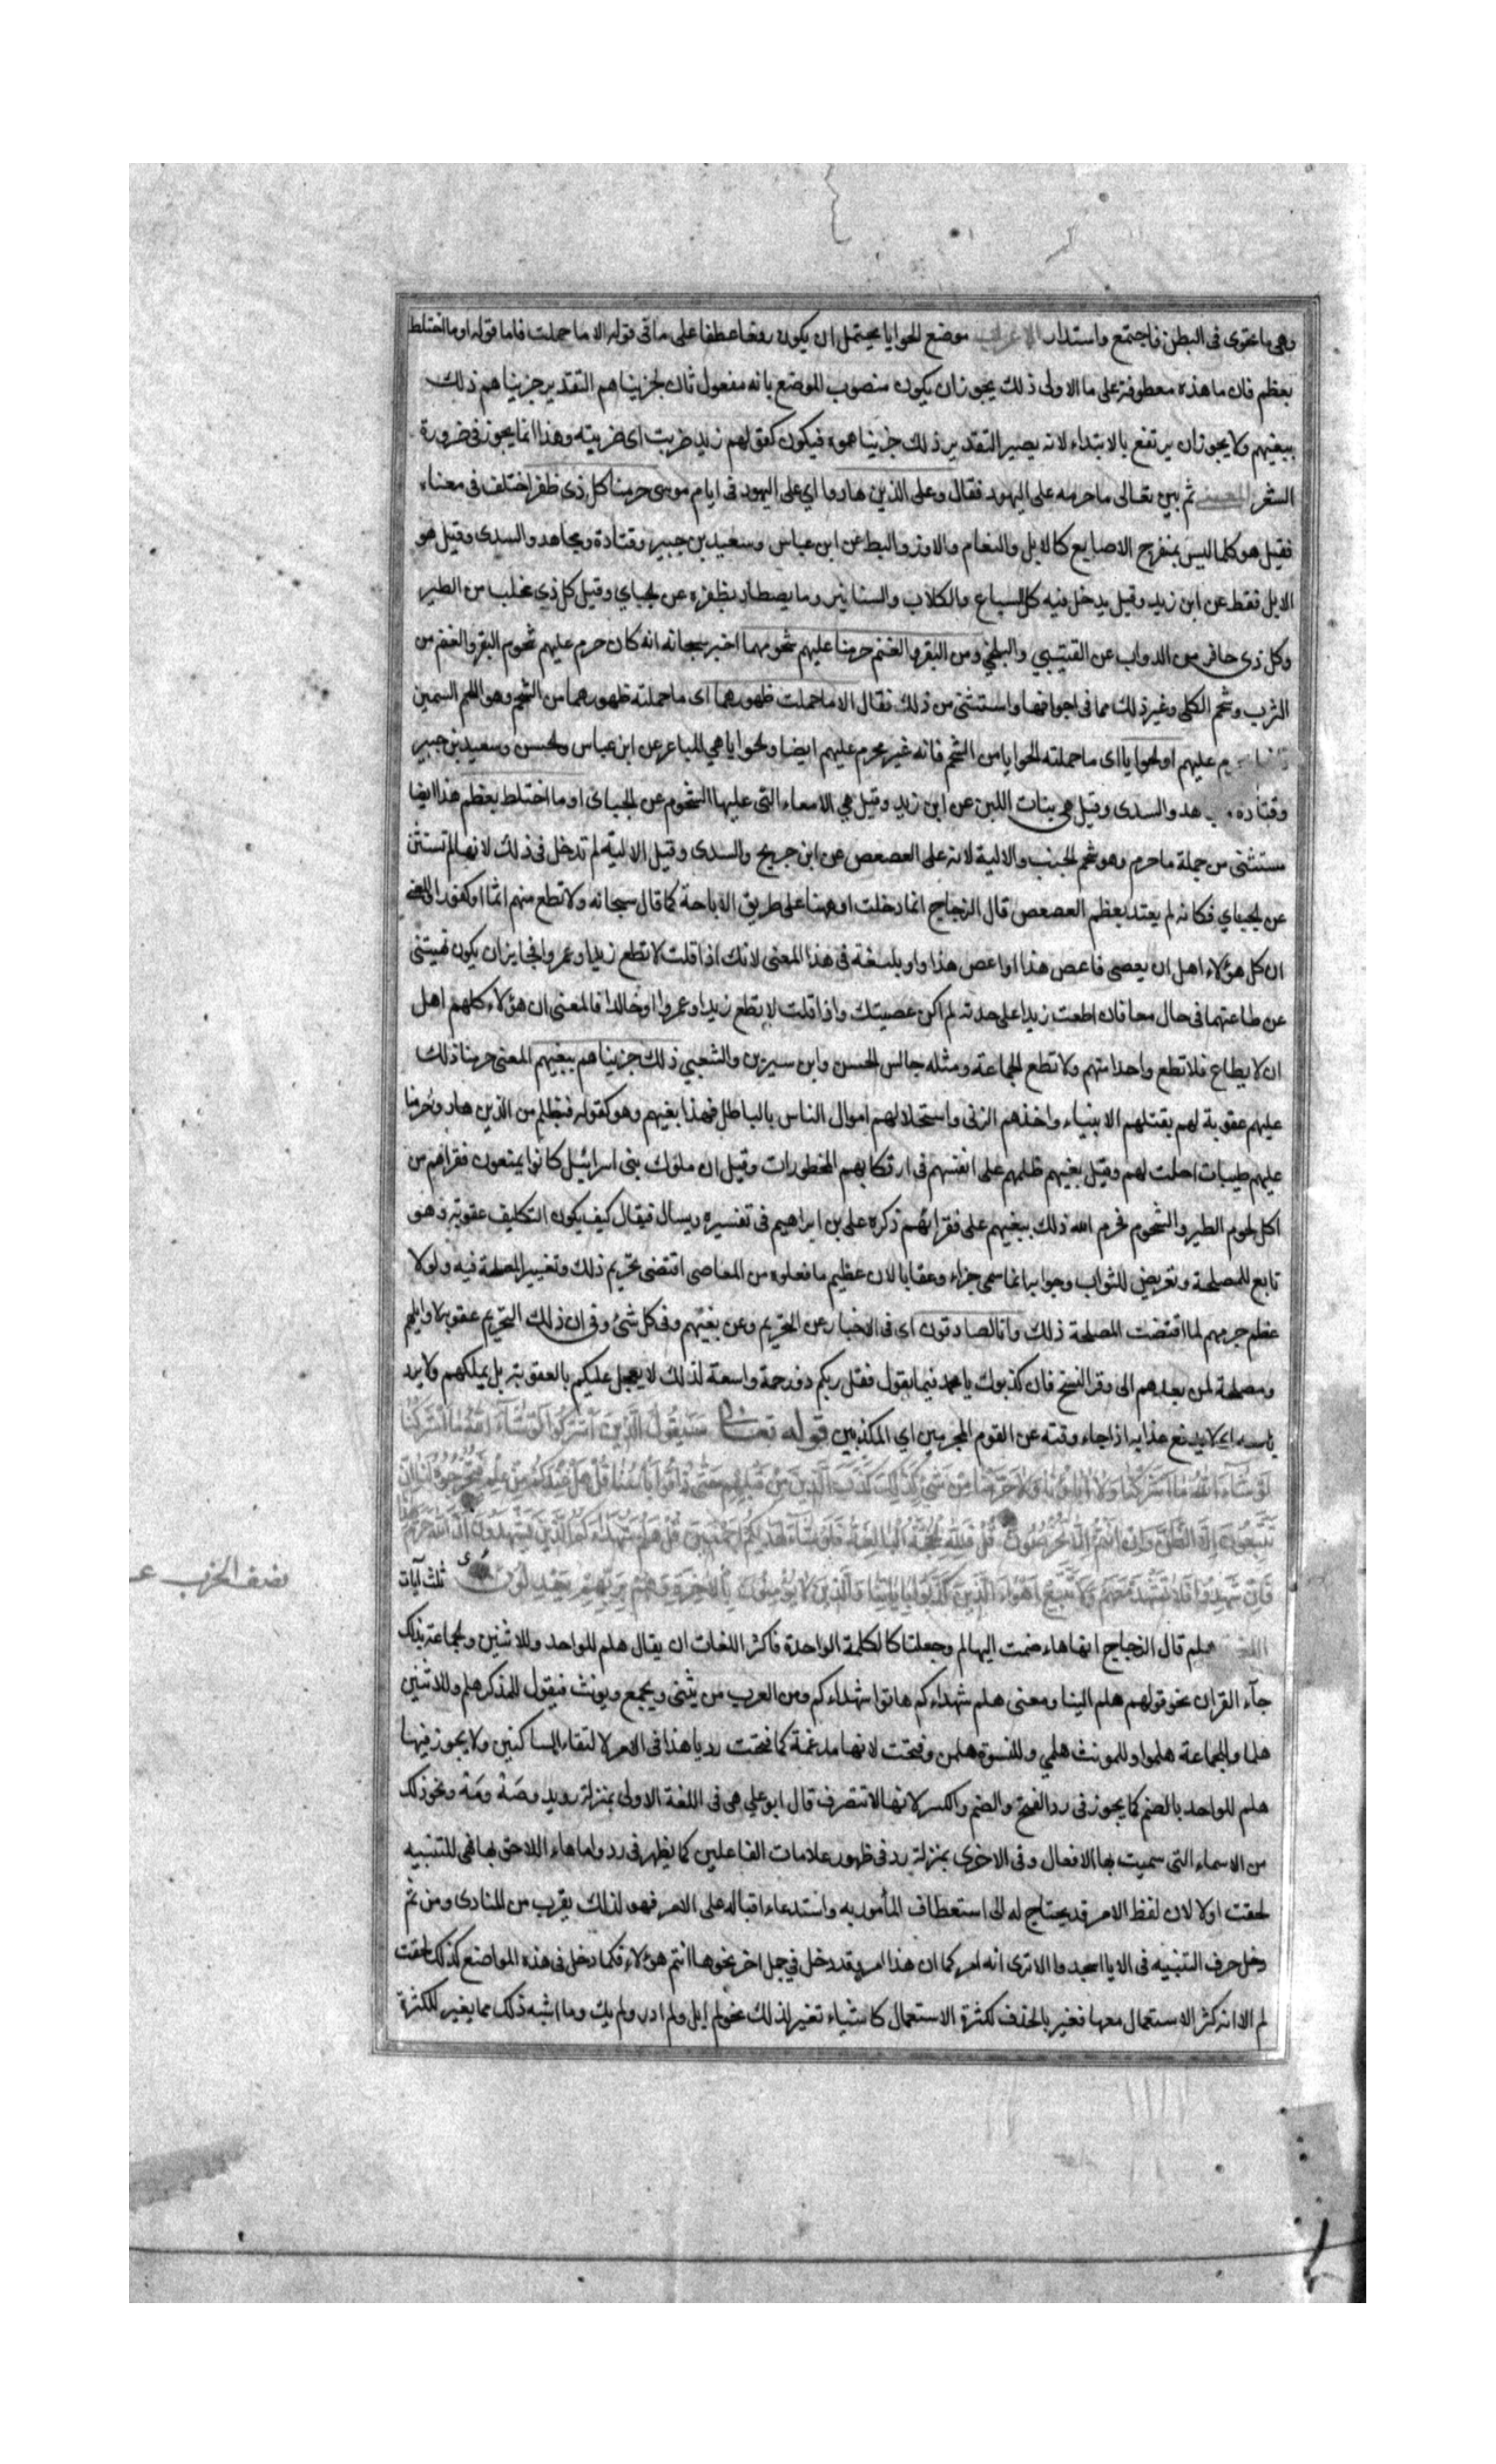 وهى ما يحتوى فى البطن فاجتمع واستدار الاعراب موضع الحوايا يحتمل ان يكون رفعا عطفا على ما فى قوله الا ما حملت فاما قوله او ما اختلط
بعظم فان ما هذه معطوفة على ما الاولى ذلك يجوز ان يكون منصوب الموضع بانه مفعول ثان لجزيناهم التقدير جزيناهم ذلك
ببغيهم ولا يجوز ان يرتفع بالابتداء لانه يصير التقدير ذلك جزيناهموه فيكون كقولهم زيد ضربت اى ضربته وهذا انما يجوز فى ضرورة
الشعر المعنى ثم بين تعالى ما حرمه على اليهود فقال وعلى الذين هادوا اي على اليهود فى ايام موسى حرمنا كل ذى ظفر اختلف فى معناه
فقيل هو كلما ليس بمنفرج الاصابع كالابل والنعام والاوز والبط عن ابن عباس وسعيد بن جبير وقتادة ومجاهد والسدى وقيل هو
الابل فقط عن ابن زيد وقيل يدخل فيه كل السباع والكلاب والسنانير وما يصطاد بظفره عن الجباي وقيل كل ذي مخلب من الطير
وكل ذى حافر من الدواب عن القتيبي والبلخي ومن البقر والغنم حرمنا عليهم شحومهما اخبر سبحانه انه كان حرم عليهم شحوم البقر والغنم من
الثرب وشحم الكلى وغير ذلك مما فى اجوافها واستثنى من ذلك فقال الا ما حملت ظهورهما اى ما حملته ظهورهما من الشحم وهو اللحم السمين
عليهم او الحوايا اى ما حملته الحوايا من الشحم فانه غير محرم عليهم ايضا والحوايا هى المباعر عن ابن عباس والحسن وسعيد بن جبير
وقتاده هد والسدى وقيل هى بنات اللبن عن ابن زيد وقيل هي الامعاء التى عليها الشحوم عن الجباى او ما اختلط بعظم هذا ايضا
مستثنى من جملة ما حرم وهو شحم الجنب والالية لانه على العصعص عن ابن جريج والسدى وقيل الالية لم تدخل فى ذلك لانها لم تستثن
عن الجباي فكانه لم يعتد بعظم العصعص قال الزجاج انما دخلت او ههنا على طريق الاباحة كما قال سبحانه ولا تطع منهم اثما او كفورا والمعنى
ان كل هؤلاء اهل ان يعصى فاعص هذا او اعص هذا واو بليغة فى هذا المعنى لانك اذا قلت لا تطع زيدا وعمروا فجايز ان يكون نهيتنى
عن طاعتهما فى حال معا فان اطعت زيدا على حدته لم اكن عصيتك واذا قلت لا تطع زيدا او عمروا او خالدا فالمعنى ان هؤلاء كلهم اهل
ان لا يطاع فلا تطع واحدا منهم ولا تطع الجماعة ومثله جالس الحسن وابن سيرين والشعبي ذلك جزيناهم ببغيهم المعنى حرمنا ذلك
عليهم عقوبة لهم بقتلهم الانبياء واخذهم الربى واستحلالهم اموال الناس بالباطل فهذا بغيهم وهو كقوله فبظلم من الذين هادوا حرمنا
عليهم طيبات احلت لهم وقيل بغيهم ظلمهم على انفسهم فى ارتكابهم المحظورات وقيل ان ملوك بنى اسرائيل كانوا يمنعون فقراهم من
اكل لحوم الطير والشحوم فحرم الله ذلك ببغيهم على فقرائهم ذكره على بن ابراهيم فى تفسيره ويسال فيقال كيف يكون التكليف عقوبة وهو
تابع للمصلحة وتعريض للثواب وجوابه انما سمى جزاء وعقابا لان عظيم ما فعلوه من المعاصى اقتضى تحريم ذلك وتغيير المصلحة فيه ولولا
عظم جرمهم لما اقتضت المصلحة ذلك وانا لصادقون اى فى الاخبار عن التحريم وعن بغيهم وفى كل شئ وفى ان ذلك التحريم عقوبة لاوايلهم
ومصلحة لمن بعدهم الى وقت النسخ فان كذبوك يا محمد فيما تقول فقل ربكم ذو رحمة واسعة لذلك لا يعجل عليكم بالعقوبة بل يمهلكهم ولا يرد
باسه اى لا يدفع عذابه اذا جاء وقته عن القوم المجرمين اي المكذبين قوله تعالى سَيَقُولُ الَّذِينَ أَشْرَكُوا لَوْ شَاءَ اللَّهُ مَا أَشْرَكْنَا
لَوْ شَاءَ اللَّهُ مَا أَشْرَكْنَا وَلَا آبَاؤُنَا وَلَا حَرَّمْنَا مِنْ شَيْءٍ كَذَلِكَ كَذَّبَ الَّذِينَ مِنْ قَبْلِهِمْ حَتَّى ذَاقُوا بَأْسَنَا قُلْ هَلْ عِنْدَكُمْ مِنْ عِلْمٍ فَتُخْرِجُوهُ لَنَا إِنْ
تَتَّبِعُونَ إِلَّا الظَّنَّ وَإِنْ أَنْتُمْ إِلَّا تَخْرُصُونَ قُلْ فَلِلَّهِ الْحُجَّةُ الْبَالِغَةُ فَلَوْ شَاءَ لَهَدَاكُمْ أَجْمَعِينَ قُلْ هَلُمَّ شُهَدَاءَكُمُ الَّذِينَ يَشْهَدُونَ أَنَّ اللَّهَ حَرَّمَ هَذَا
فَإِنْ شَهِدُوا فَلَا تَشْهَدْ مَعَهُمْ وَلَا تَتَّبِعْ أَهْوَاءَ الَّذِينَ كَذَّبُوا بِآيَاتِنَا وَالَّذِينَ لَا يُؤْمِنُونَ بِالْآخِرَةِ وَهُمْ بِرَبِّهِمْ يَعْدِلُونَ ثلث آيات
نصف الحزب
اللغة هلم قال الزجاج انها هاء ضمت اليها لم وجعلتا كالكلمة الواحدة فاكثر اللغات ان يقال هلم للواحد وللاثنين والجماعة بذلك
جآء القران نحو قولهم هلم الينا ومعنى هلم شهداءكم هاتوا شهداءكم ومن العرب من يثنى ويجمع ويونث فيقول للمذكر هلم وللاثنين
هلما وللجماعة هلموا وللمونث هلمي وللنسوة هلمن وفتحت لانها مدغمة كما فتحت رد يا هذا فى الامر لالتقاء الساكنين ولا يجوز فيها
هلم للواحد بالضم كما يجوز فى رد الفتح والضم والكسر لانها لا تتصرف قال ابو علي هى فى اللغة الاولى بمنزلة رويد وصَهْ ومَهْ ونحو ذلك
من الاسماء التى سميت بها الافعال وفى الاخرى بمنزلة رد فى ظهور علامات الفاعلين كما يظهر فى رد واما هاء اللاحق بها فهى للتنبيه
لحقت اولا لان لفظ الامر قد يحتاج له الى استعطاف المأمور به واستدعاء اقباله على الامر فهو لذلك يقرب من المنادى ومن ثم
دخل حرف التنبيه فى الا يا اسجدوا الا ترى انه امر كما ان هذا امر وقد دخل في جمل اخر نحو ها انتم هؤلاء فكما دخل فى هذه المواضع كذلك لحقت
لم الا انه كثر الاستعمال معها فغير بالحذف لكثرة الاستعمال كاشياء تغير لذلك نحو لم ابل ولم ادر ولم يك وما اشبه ذلك مما يغير للكثرة